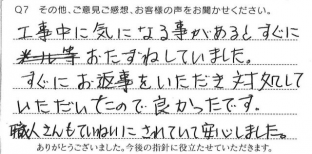 Q7 その他、ご意見ご感想、お客様の声をお聞かせください。
工事中に気になる事があるとすぐに
メール等おたずねしていました。
すぐにお返事をいただき対処して
いただいてたので良かったです。
職人さんもていねいにされていて安心しました。
ありがとうございました。今後の指針に役立たせていただきます。